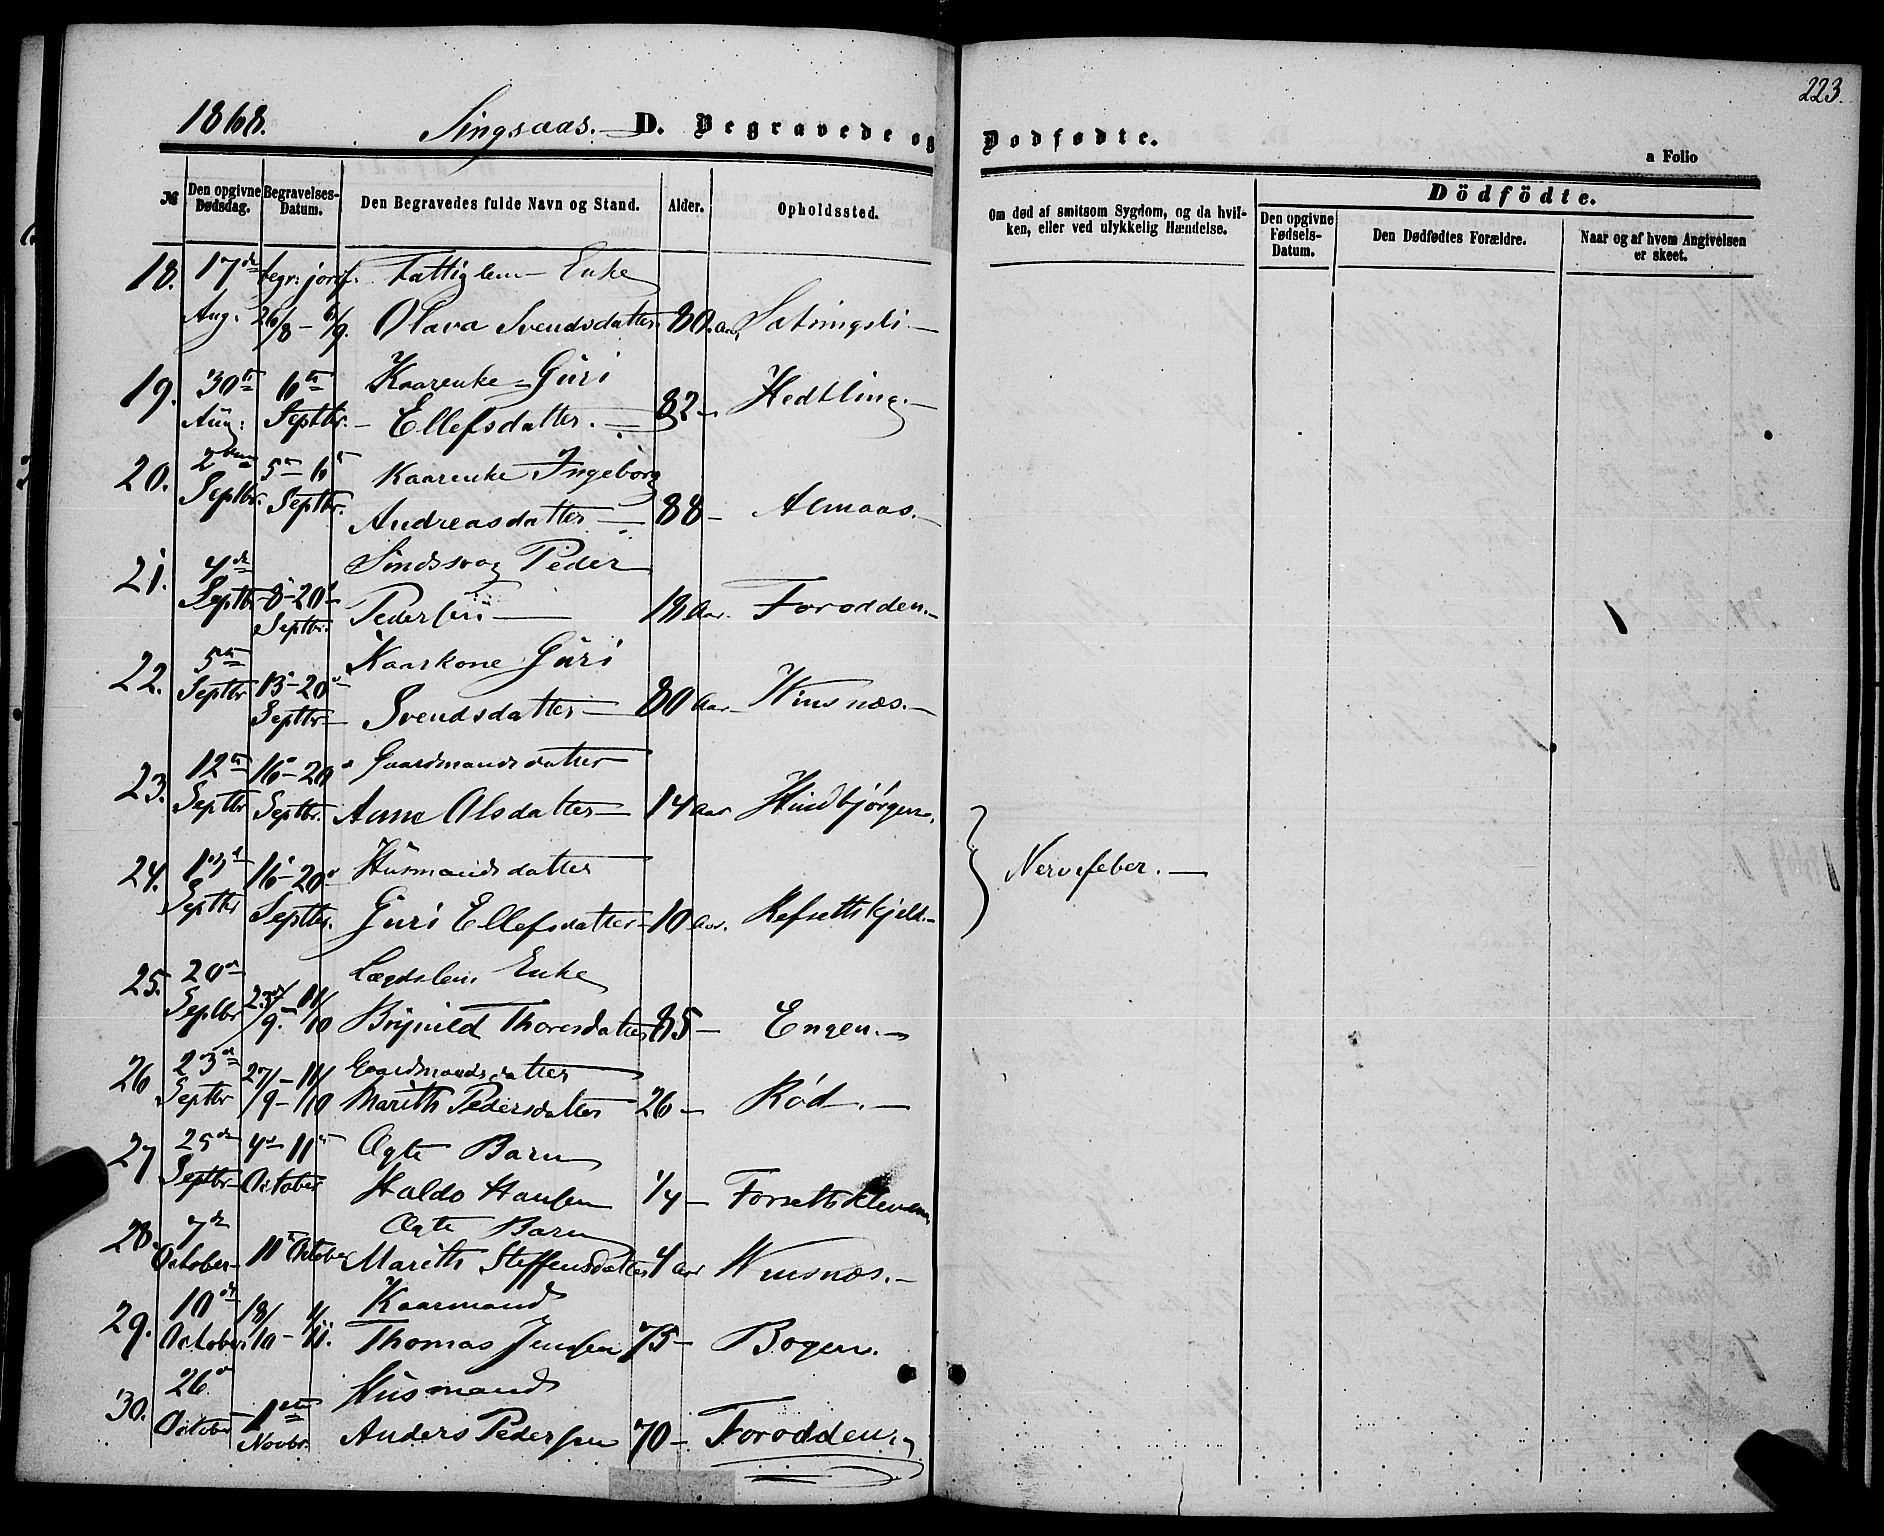 1868. Singsaas. D. Begravede og Dødfødte. 223.
a Folio
№ Den opgivne Dødsdag. Begravelses-Datum. Den Begravedes fulde Navn og Stand. Alder. Opholdssted.
Om død af smitsom Sygdom, og da hvilken, eller ved ulykkelig Hændelse. Dödfödte.
Den opgivne Fødsels-Datum. Den Dødfødtes Forældre. Naar og af hvem Angivelsen er skeet.
18. 17de begr: jordf. Fattiglem Enke
Aug. 26/8 - 6/9. Olava Svendsdatter 80 Aar,
19. 30te 6te Kaarenke - Guri
Aug: Septbr. - Ellefsdatter. 82 - Hedtling. -
20. 2den 5te 6te Kaarenke Ingeborg
Septbr. Septbr. Andreasdatter - 88 - Almaas. -
21. 4de Sindssvag Peder
Septbr 8-20 Septbr. Pedersen - Aar. Forodden. -
22. 5te Kaarkone Guri
Septbr 13-20 Septbr - Svendsdatter - 80 Aar - Winsnæs. -
23. 12te 16-20 Gaardmandsdatter
Septbr Septbr. Anne Olsdatter - 14 Aar Hindbjørgen.
24. 13de 16-20 Husmandsdatter
Septbr Septbr. Guri Ellefsdatter - 10 Aar. Refsethskjell. -
Nervefeber. -
25. 20de Lægdslem Enke
Septbr 23/9 - 11/10 Brynild Thoresdatter 85 - Engen. -
26 23de 27/9 - 11/10 Gaardmandsdatter
Septbr Marith Pedersdatter 26 - Rød. -
27 25de 4de 11te Ægte Barn
Septbr - October Haldo Hansen 1/4 -
28. 7de Ægte Barn
October 11te October Marith Steffensdatter 4 Aar Winsnæs. -
29. 10de 18/10 - 1/11. Kaarmand
October Thomas Jensen 75 - Bogen.
30. 26de Husmand
October 1ste Novbr. Anders Pedersen 70 - Forodden.